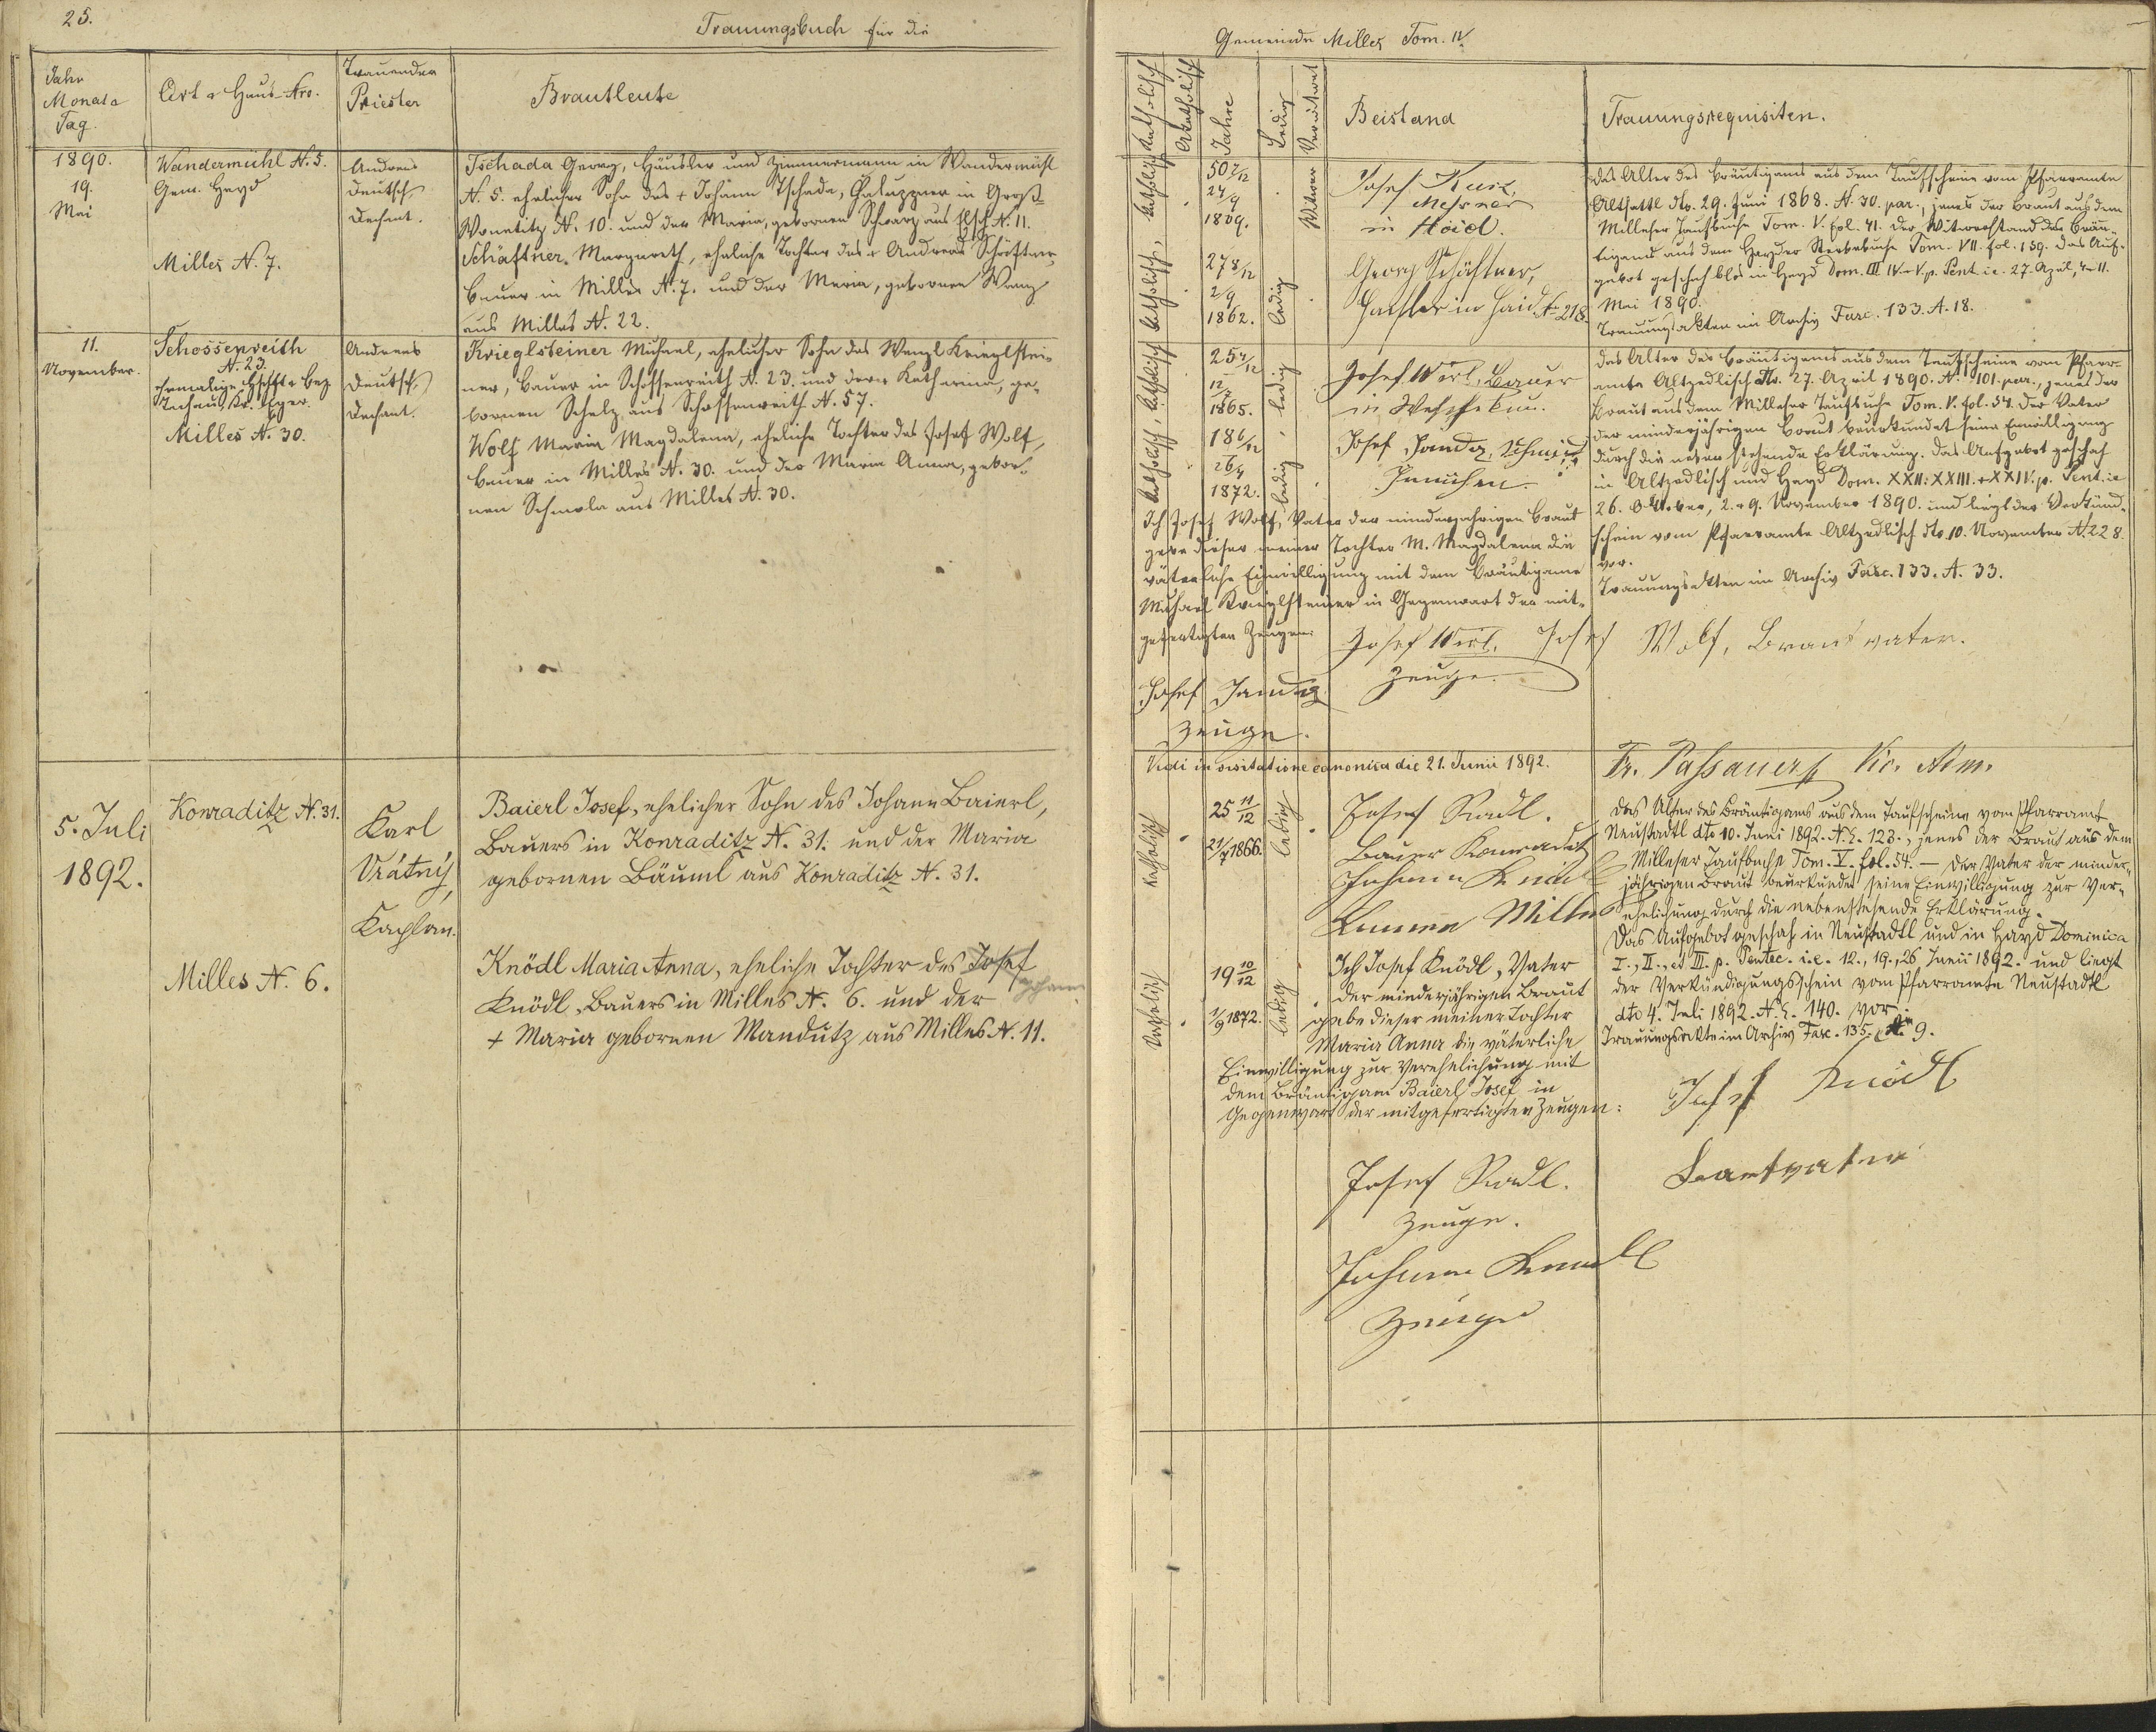 25.
Trauungsbuch für die
Jahr
Monat
Tag.
Ort & Haus-Nro.
Trauender
Priester
Brautleute
1890.
19.
Mai
Wandermühl N. 5.
Gem. Hayd
Milles N. 7.
Andreas
Deutsch,
Dechant.
Tschada Georg, Häusler und Zimmermann in Wandermühl
N. 5. ehelicher Sohn des + Johann Tschada, Chaluppner in Groß-
Wonetitz N. 10. und der Maria, gebornen Schwarz aus Elsch N. 11.
Schäftner Margareth, eheliche Tochter des + Andreas Schäftner,
Bauer in Milles N. 7. und der Maria, gebornen Wenz
aus Milles N. 22.
11.
November.
Schossenreith
N. 23.
ehemalige Hschft & Bez.
Tachau Kr. Eger.
Milles N. 30.
Andreas
Deutsch,
Dechant.
Krieglsteiner Michael, ehelicher Sohn des Wenzl Krieglstei-
ner, Bauer in Schossenreith N. 23. und der Katharina, ge-
bornen Schelz aus Schossenreith N. 57.
Wolf Maria Magdalena, eheliche Tochter des Josef Wolf,
Bauer in Milles N. 30. und der Maria Anna, gebor-
nen Schmola aus Milles N. 30.
5. Juli
1892.
Konraditz N. 31.
Milles N. 6.
Karl
Vrátný,
Kaplan.
Baierl Josef, ehelicher Sohn des Johann Baierl,
Bauers in Konraditz N. 31. und der Maria
gebornen Bäuml aus Konraditz N. 31.
Knödl Maria Anna, eheliche Tochter des Josef
Johann
Knödl, Bauers in Milles N. 6. und der
+ Maria gebornen Mandutz aus Milles N. 11.
Gemeinde Milles Tom. IV.
Katholisch
Akatholisch
Jahre
Ledig
Verwitwet
Beistand
Trauungsrequisiten.
katholisch, katholisch,
50 7/12
24/9
1839.
Witwer
27 8/12
2/9
1862.
ledig
Josef Kurz,
Messner
in Haid.
Georg Schäftner,
Häusler in Haid N 218.
Das Alter des Bräutigams aus dem Taufschein vom Pfarramte
Altsattl dto. 29. Juni 1868. N. 30. par., jenes der Braut aus dem
Milleser Taufbuche Tom. V. fol. 41. Der Witwerstand des Bräu-
tigams aus dem Hayder Sterbebuche Tom. VII. fol. 159. Das Auf-
gebot geschah blos in Hayd Dom. III IV & V p. Pent. i.e. 27. April, 4 & 11.
Mai 1890.
Trauungsakten im Archiv Fasc. 133. A. 18.
katholisch, katholisch
1865.
ledig
18 6/12
26/4
1872.
ledig
Josef Wirl, Bauer
Josef Janda, Schmied
Das Alter des Bräutigams aus dem Taufscheine vom Pfarr-
amte Altzedlisch dto. 27. April 1890. N. 101. par., jenes der
Braut aus dem Milleser Taufbuche Tom. V. fol. 54. Der Vater
der minderjährigen Braut beurkundet seine Einwilligung
durch die nebenstehende Erklärung. Das Aufgebot geschah
in Altzedlisch und Hayd Dom. XXII: XXIII. & XXIV. p. Pent. ie
26. Oktober, 2. & 9. November 1890. und liegt der Verkünd-
schein vom Pfarramte Altzedlisch dto 10. November N. 228.
vor.
Trauungsakten im Archiv Fasc. 133. A. 33.
Ich Josef Wolf, Vater der minderjährigen Braut
gebe dieser meiner Tochter M. Magdalena die
väterliche Einwilligung mit dem Bräutigame
Michael Krieglsteiner in Gegenwart der mit-
gefertigten Zeugen:
Josef Wirl. Josef Wolf, Brautvater.
Zeuge.
Josef Janda
Zeuge.
Vidi in visitatione canonica die 21. Junii 1892.
Fr. Passauer Vic. Adm.
Katholisch
25 11/12
21/7 1866.
ledig
Josef Radl.
Bauer Konraditz
Johann Knödl
Milles
Das Alter des Bräutigams aus dem Taufscheine vom Pfarramt
Neustadtl dto 10. Juni 1892. N. E. 123., jenes der Braut aus dem
Milleser Taufbuche Tom. V. fol. 54. — Der Vater der minder-
jährigen Braut beurkundet seine Einwilligung zur Ver-
ehelichung durch die nebenstehende Erklärung.
Das Aufgebot geschah in Neustadtl und in Hayd Dominica
I., II., et III. p. Pentec. i.e. 12., 19., 26 Junii 1892. und liegt
der Verkündigungsschein vom Pfarramte Neustadtl
dto 4. Juli 1892. N. E. 140. vor.
Trauungsakte im Archiv Fasc. 135. N. 9.
Katholisch
19 10/12
1/9 1872.
ledig
Ich Josef Knödl, Vater
der minderjährigen Braut
gebe dieser meiner Tochter
Maria Anna die väterliche
Einwilligung zur Verehelichung mit
dem Bräutigam Baierl Josef in
Gegenwart der mitgefertigten Zeugen:
Josef Knödl
Brautvater
Josef Radl.
Zeuge.
Johann Knödl
Zeuge